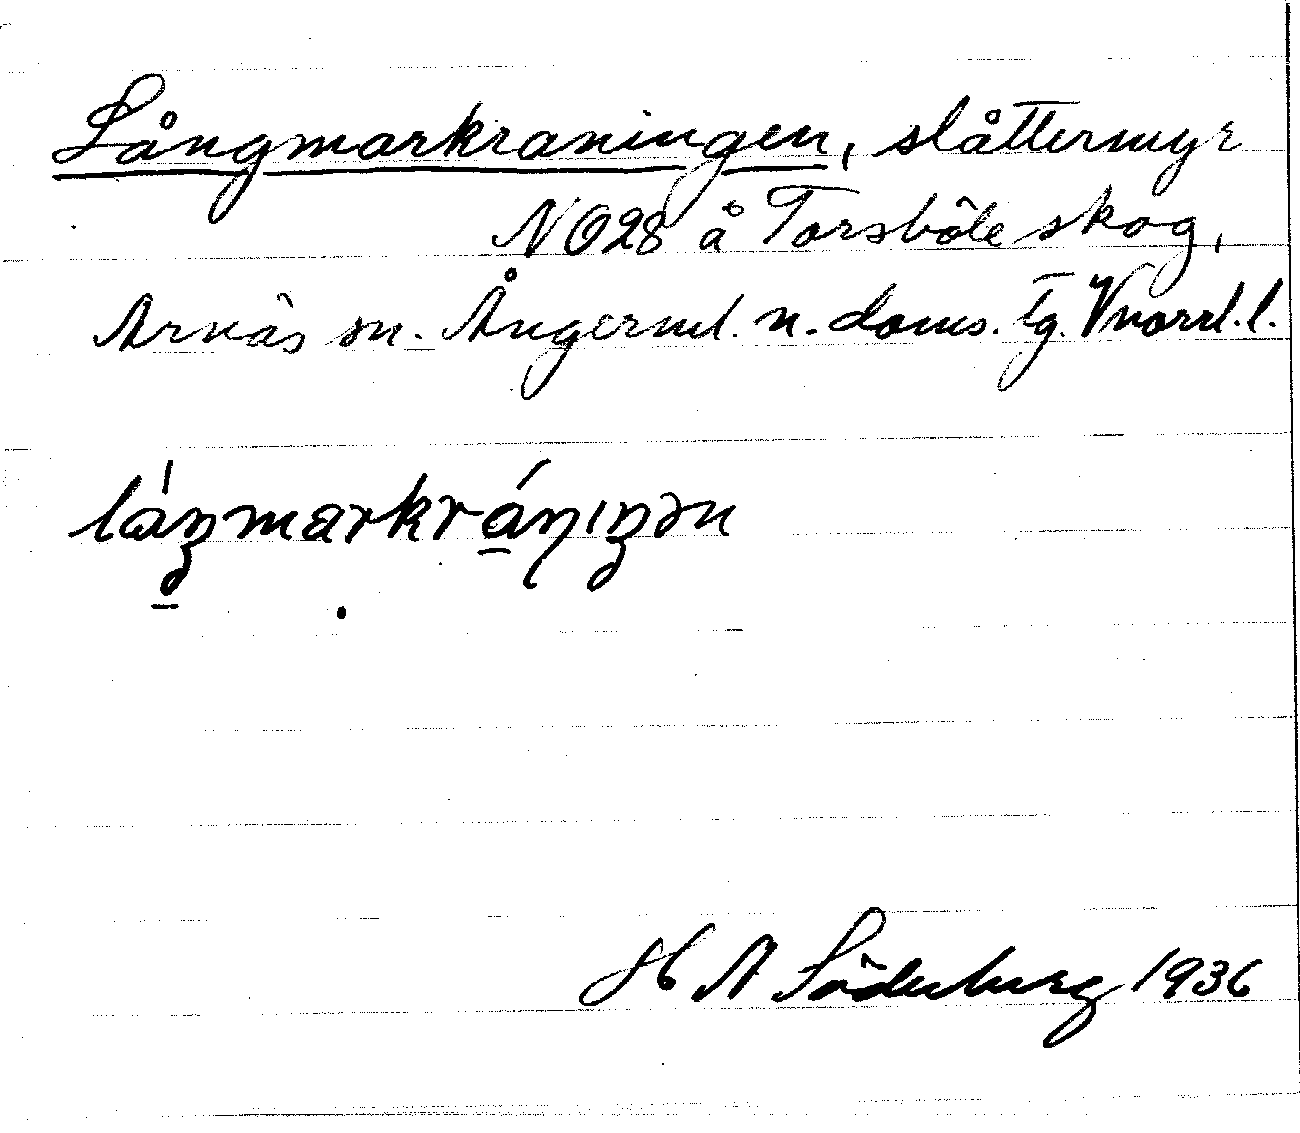 Långmarkraningen, slåttermyr
NO28 å Torsböle skog,
Arnäs sn. Ångerml. n. doms. tg. Vnorrl. l.
láŋmarkránıŋən
H A Söderberg 1936